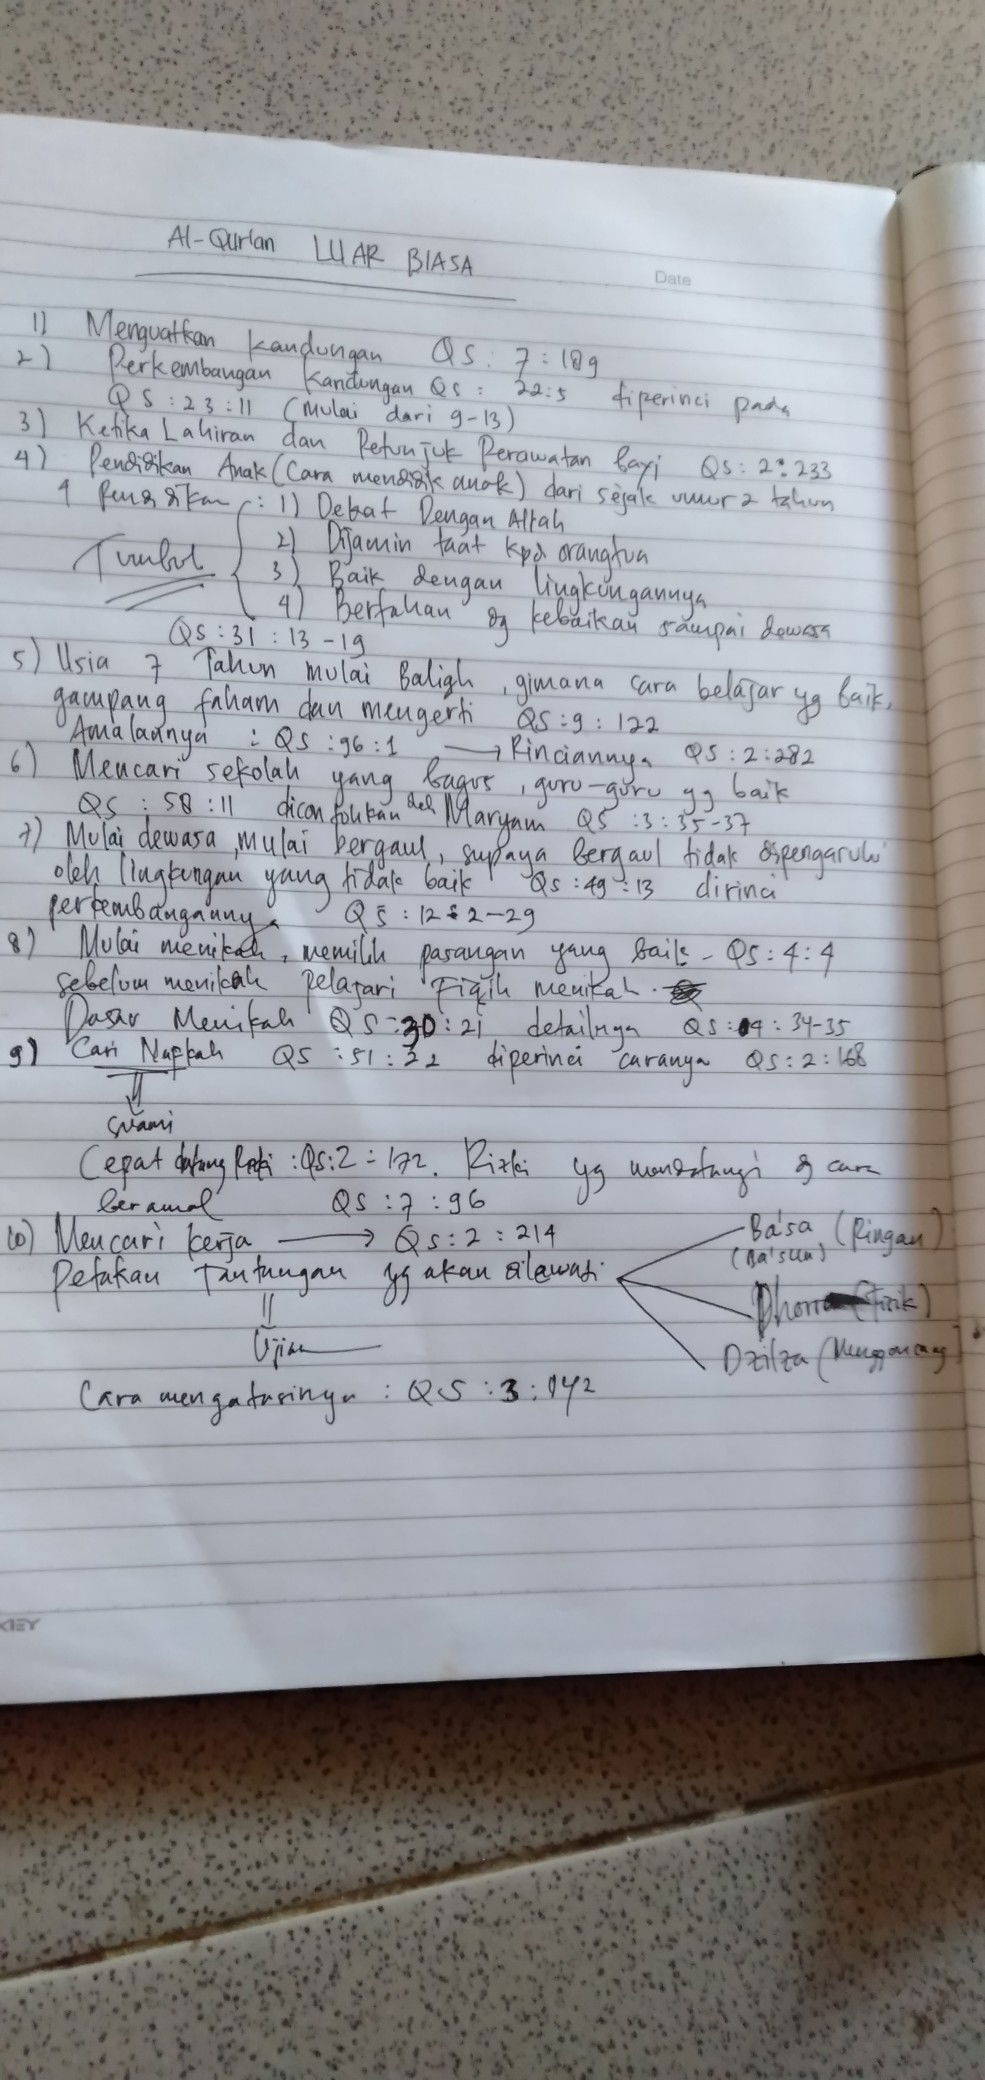 Al-Qur'an LUAR BIASA
Date
1) Menguatkan kandungan QS : 7 : 189
2) Perkembangan Kandungan QS : 22:5 diperinci pada
QS : 23 : 11 (Mulai dari 9-13)
3) Ketika Lahiran dan Petunjuk Perawatan bayi QS : 2 : 233
4) Pendidikan Anak (Cara mendidik anak) dari sejak umur 2 tahun
4 : 1) Dekat Dengan Allah
2) Dijamin taat kpd orangtua
Tumbuh
3) Baik dengan lingkungannya
4) Bertahan dg kebaikan sampai dewasa
QS : 31 : 13 - 19
5) Usia 7 Tahun mulai Baligh, gimana cara belajar yg baik,
gampang faham dan mengerti QS : 9 : 122
Amalannya : QS : 96 : 1 → Rinciannya QS : 2 : 282
6) Mencari sekolah yang bagus, guru-guru yg baik
QS : 58 : 11 dicontohkan oleh Maryam QS : 3 : 35-37
7) Mulai dewasa, mulai bergaul, supaya bergaul tidak dipengaruhi
oleh lingkungan yang tidak baik QS : 49 : 13 dirinci
perkembangannya QS : 12 : 2 - 29
8) Mulai menikah, memilih pasangan yang baik - QS : 4 : 4
sebelum menikah pelajari Fiqih menikah.
Dasar Menikah QS : 30 : 21 detailnya QS : 4 : 34-35
9) Cari Nafkah QS : 51 : 22 diperinci caranya QS : 2 : 168
suami
Cepat datang : QS : 2 : 172. Rizki yg mendatangi dg cara
beramal QS : 7 : 96
10) Mencari kerja → QS : 2 : 214
Ba'sa (Ringan)
(Ba'sun)
Petakan Tantangan yg akan dilewati
(Fizik)
Ujian
Dzilza (Mengguncang)
Cara mengatasinya : QS : 3 : 142
KIEY